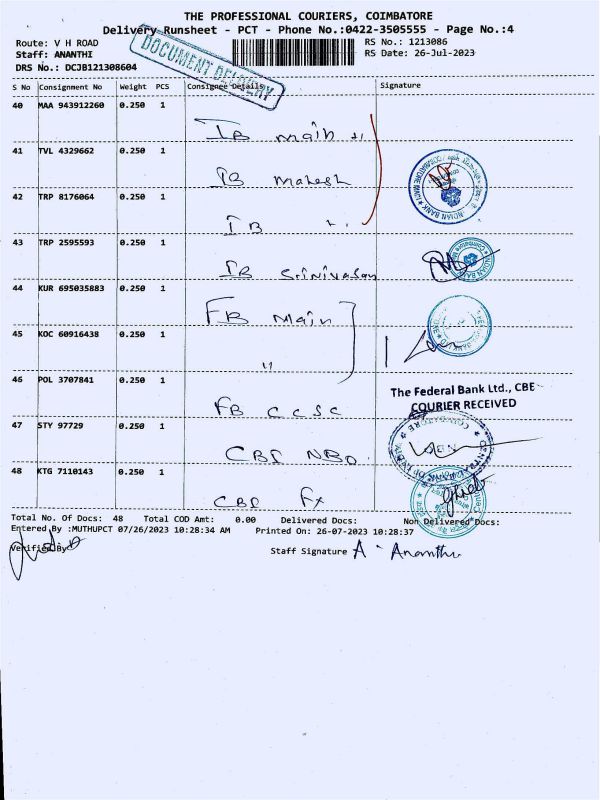 THE PROFESSIONAL COURIERS, COIMBATORE
Delivery Runsheet - PCT - Phone No.:0422-3505555 - Page No.:4
Route: V H ROAD
Staff: ANANTHI
DRS No.: DCJB121308604
RS No.: 1213086
RS Date: 26-Jul-2023
DOCUMENT DELIVERY
S No Consignment No Weight PCS Consignee Details Signature
40 MAA 943912260 0.250 1
IB main
41 TVL 4329662 0.250 1
IB mahesh
42 TRP 8176064 0.250 1
IB "
43 TRP 2595593 0.250 1
IB Srinivasan
INDIAN BANK
44 KUR 695035883 0.250 1
FB Main
45 KOC 60916438 0.250 1
"
46 POL 3707841 0.250 1
FB CCSC
The Federal Bank Ltd., CBE
COURIER RECEIVED
47 STY 97729 0.250 1
CBI NBO
48 KTG 7110143 0.250 1
CBI Fx
Total No. Of Docs: 48 Total COD Amt: 0.00 Delivered Docs: Non Delivered Docs:
Entered By :MUTHUPCT 07/26/2023 10:28:34 AM Printed On: 26-07-2023 10:28:37
Verified By
Staff Signature A. Ananthi